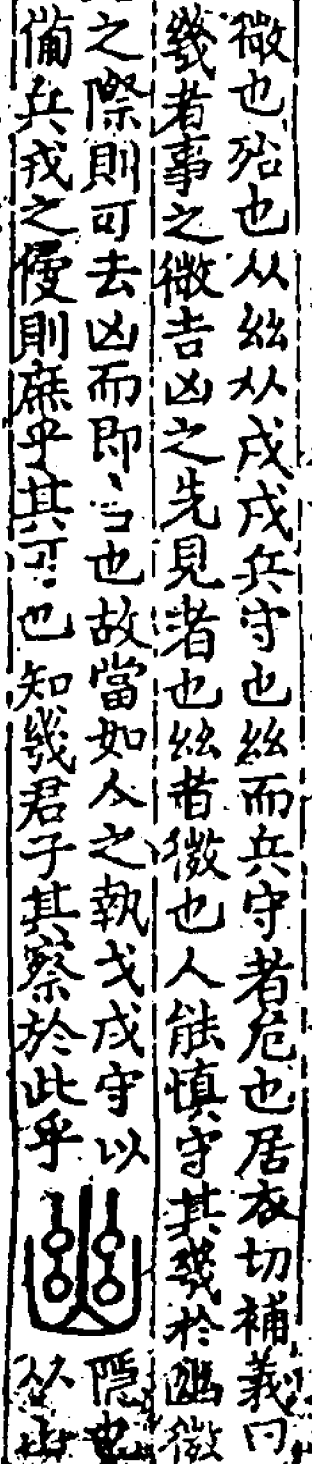 微也殆也从𢆶从戍戍兵守也𢆶而兵守者危也居衣切補義曰
幾者事之微吉凶之先見者也𢆶者微也人能慎守其幾於幽微
之際則可去凶而即吉也故當如人之執戈戍守以
備兵戎之優則庶乎其可也知幾君子其察於此乎
隱也
从山